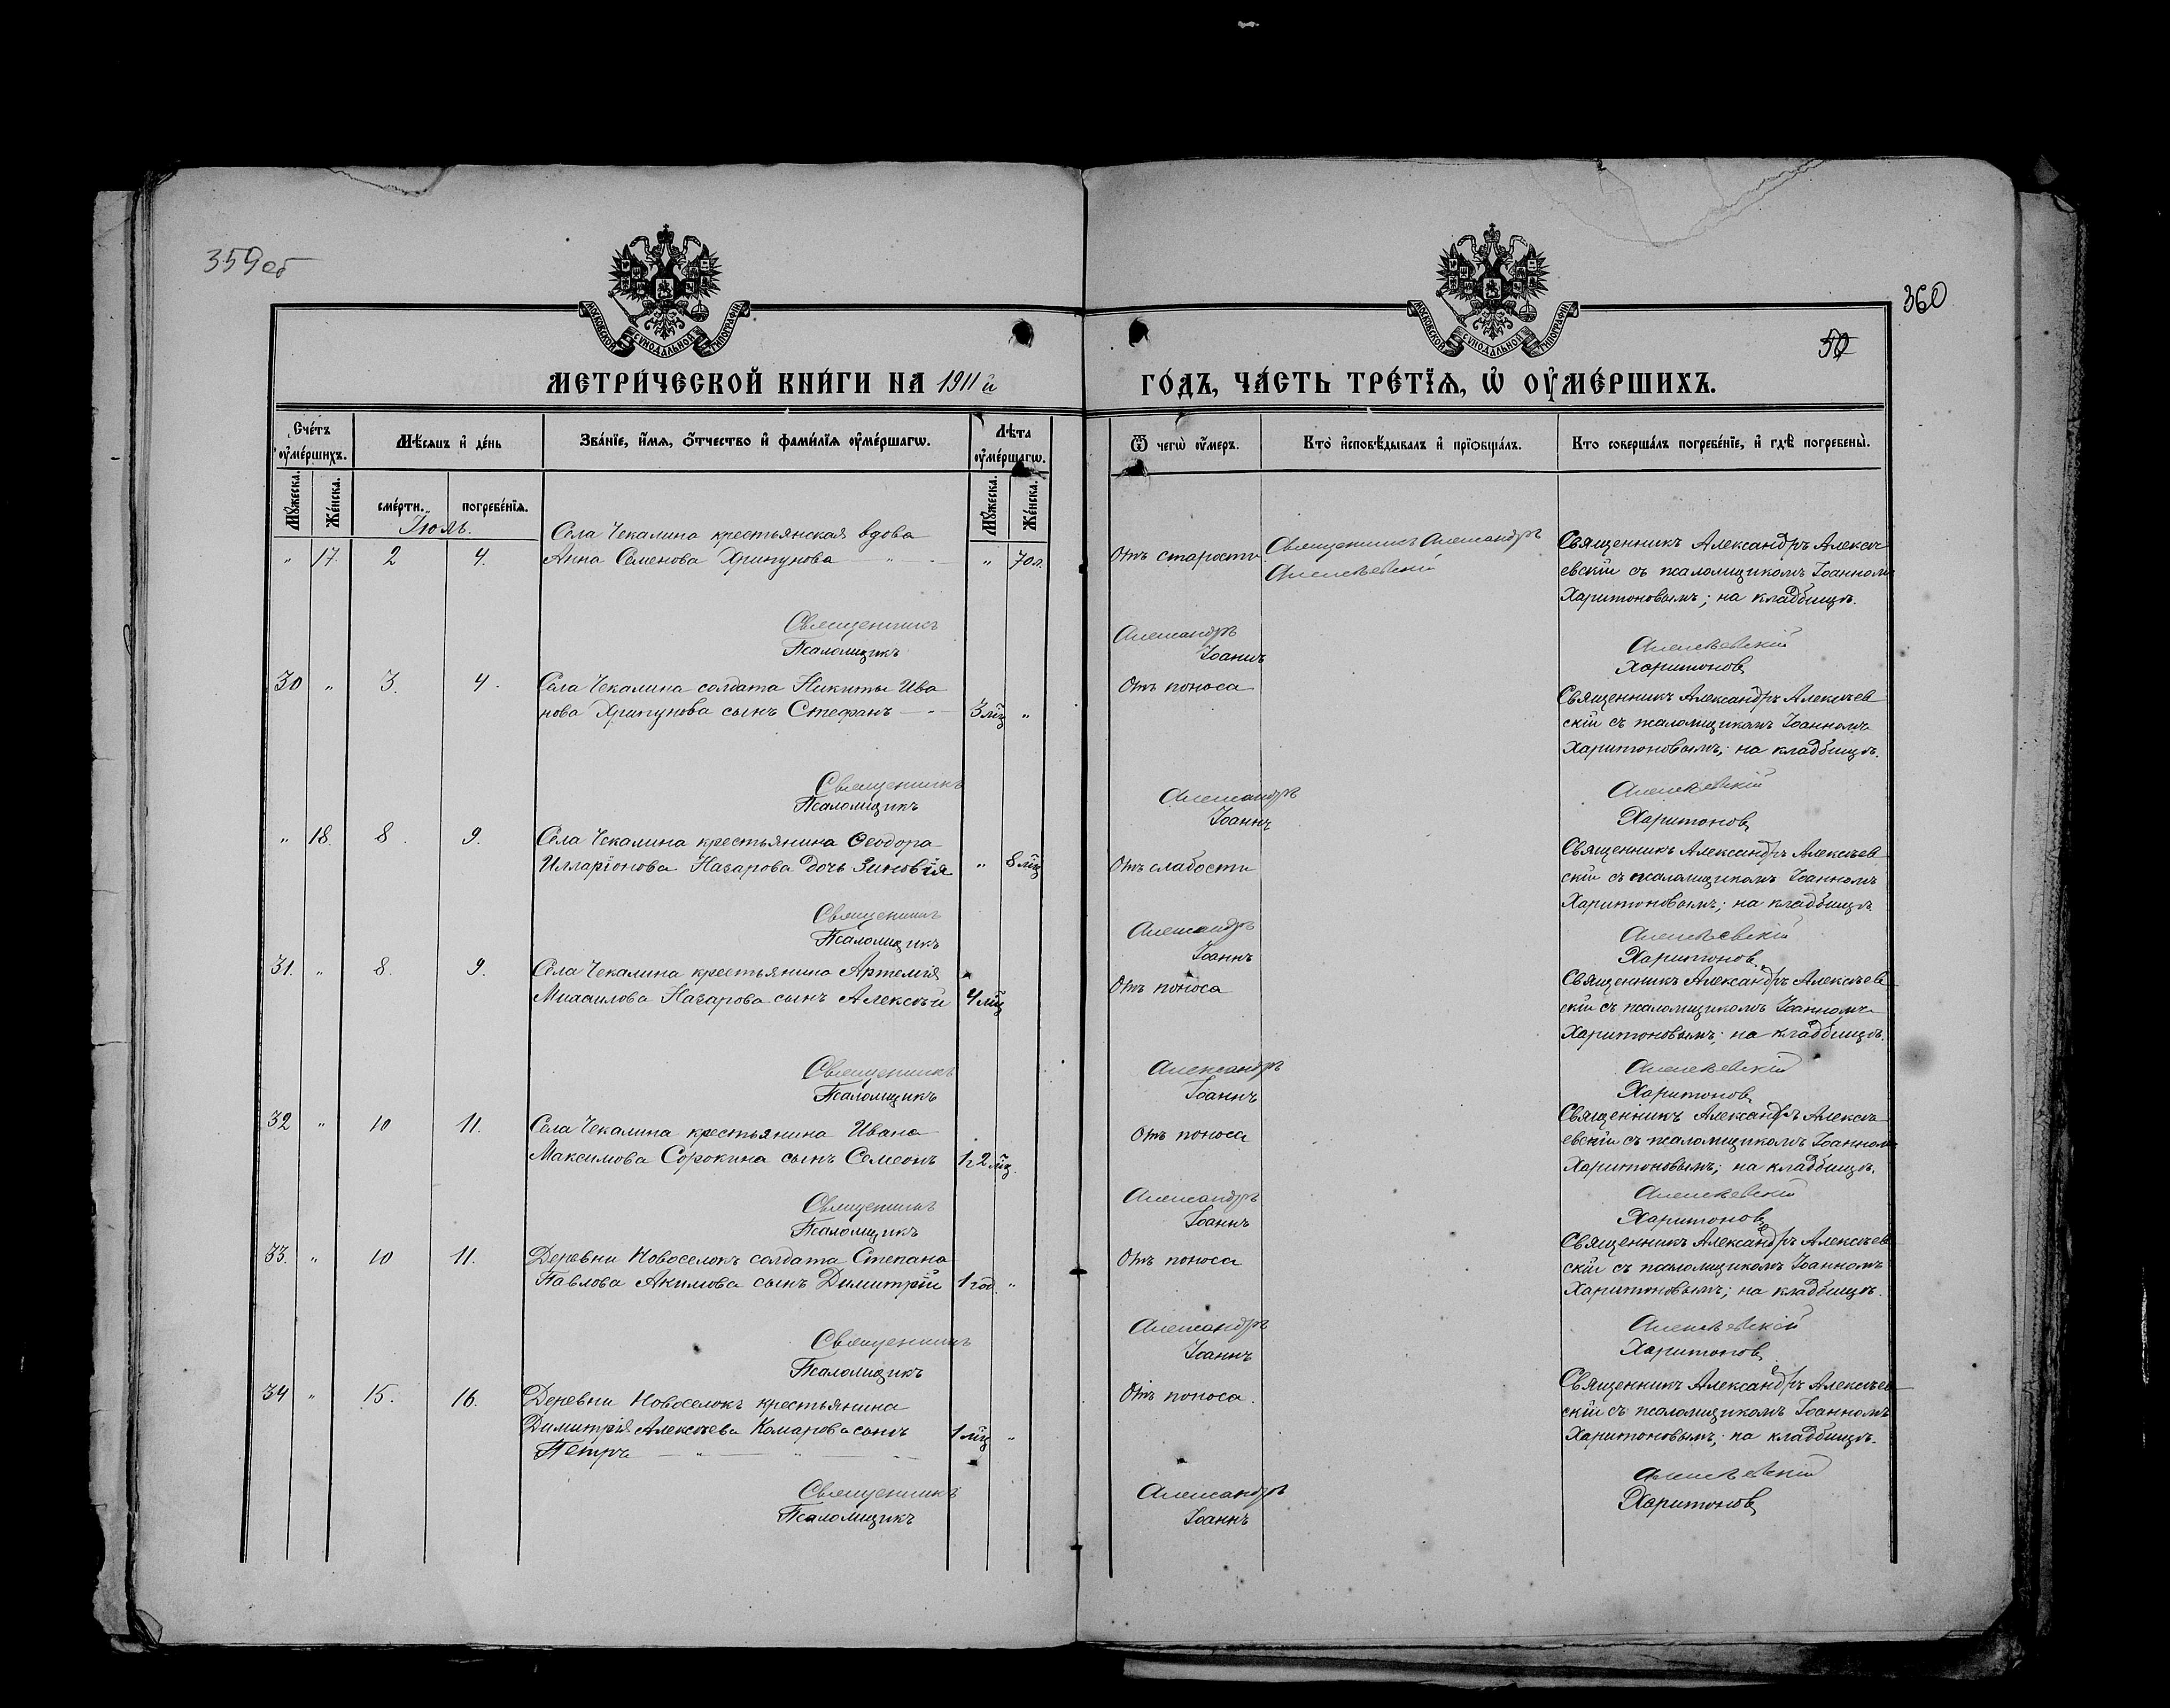 359об
360
50
МОСКОВСКОЙ СѴНОДАЛЬНОЙ ТИПОГРАФІИ
МОСКОВСКОЙ СѴНОДАЛЬНОЙ ТИПОГРАФІИ
МЕТРИ́ЧЕСКОЙ КНИ́ГИ НА 1911й
ГО́ДЪ, ЧА́СТЬ ТРЕ́ТЇѦ, Ѡ҆ ОУ҆МЕ́РШИХЪ.
Сче́тъ оу҆ме́ршихъ.
Мѣ́сяцъ и҆ де́нь
Зва́нїе, и҆́мѧ, ѻ҆́тчество и҆ фами́лїѧ оу҆ме́ршагѡ.
Лѣ́та оу҆ме́ршагѡ.
Ѿ чегѡ̀ оу҆́меръ.
Кто̀ и҆сповѣ́дывалъ и҆ прїѡбща́лъ.
Кто соверша́лъ погребе́нїе, и҆ гдѣ̀ погребены̀.
Мꙋ́жеска.
Же́нска.
сме́рти.
погребе́нїѧ.
Мꙋ́жеска.
Же́нска.
Іюль.
Села Чекалина крестьянская вдова
" 17. 2 4. Анна Семенова Хрипунова — " — " 70 л.
Отъ старости
Священникъ Александръ
Алексѣевскій
Священникъ Александръ Алексѣ
евскій съ псаломщикомъ Іоанномъ
Харитоновымъ; на кладбищѣ.
Священникъ Александръ Алексѣевскій
Псаломщикъ Іоаннъ Харитоновъ
30 " 3. 4. Села Чекалина солдата Никиты Ива
нова Хрипунова сынъ Стефанъ — " 3 мц "
Отъ поноса
Священникъ Александръ Алексѣев
скій съ псаломщикомъ Іоанномъ
Харитоновымъ; на кладбищѣ.
Священникъ Александръ Алексѣевскій
Псаломщикъ Іоаннъ Харитоновъ
" 18. 8. 9. Села Чекалина крестьянина Ѳеодора
Илларіонова Назарова дочь Зиновія " 8 мц
Отъ слабости
Священникъ Александръ Алексѣев
скій съ псаломщикомъ Іоанномъ
Харитоновымъ; на кладбищѣ
Священникъ Александръ Алексѣевскій
Псаломщикъ Іоаннъ Харитоновъ
31. " 8. 9. Села Чекалина крестьянина Артемія
Михаилова Назарова сынъ Алексѣй 4 мц
Отъ поноса
Священникъ Александръ Алексѣев
скій съ псаломщикомъ Іоанномъ
Харитоновымъ; на кладбищѣ.
Священникъ Александръ Алексѣевскій
Псаломщикъ Іоаннъ Харитоновъ
32 " 10 11. Села Чекалина крестьянина Ивана
Максимова Сорокина сынъ Семеонъ 1 г 2 мц.
Отъ поноса
Священникъ Александръ Алексѣ
евскій съ псаломщикомъ Іоанномъ
Харитоновымъ; на кладбищѣ.
Священникъ Александръ Алексѣевскій
Псаломщикъ Іоаннъ Харитоновъ
33. " 10 11. Деревни Новоселокъ солдата Степана
Павлова Акимова сынъ Димитрій 1 год. "
Отъ поноса
Священникъ Александръ Алексѣев
скій съ псаломщикомъ Іоанномъ
Харитоновымъ; на кладбищѣ.
Священникъ Александръ Алексѣевскій
Псаломщикъ Іоаннъ Харитоновъ
34 " 15. 16. Деревни Новоселокъ крестьянина
Димитрія Алексѣева Комарова сынъ
Петръ — " — " — " 1 мц "
Отъ поноса.
Священникъ Александръ Алексѣев
скій съ псаломщикомъ Іоанномъ
Харитоновымъ; на кладбищѣ.
Священникъ Александръ Алексѣевскій
Псаломщикъ Іоаннъ Харитоновъ